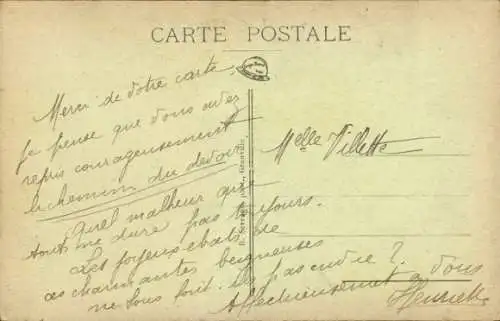 CARTE POSTALE
Merci de votre carte.
Je pense que vous avez
repris courageusement
le chemin du devoir
Quel malheur que
tout ne dure pas toujours.
Les joyeux ébats de
ces charmantes baigneuses
ne vous font-ils pas envie ?
Affectueusement à vous
Henriette
Melle Villette